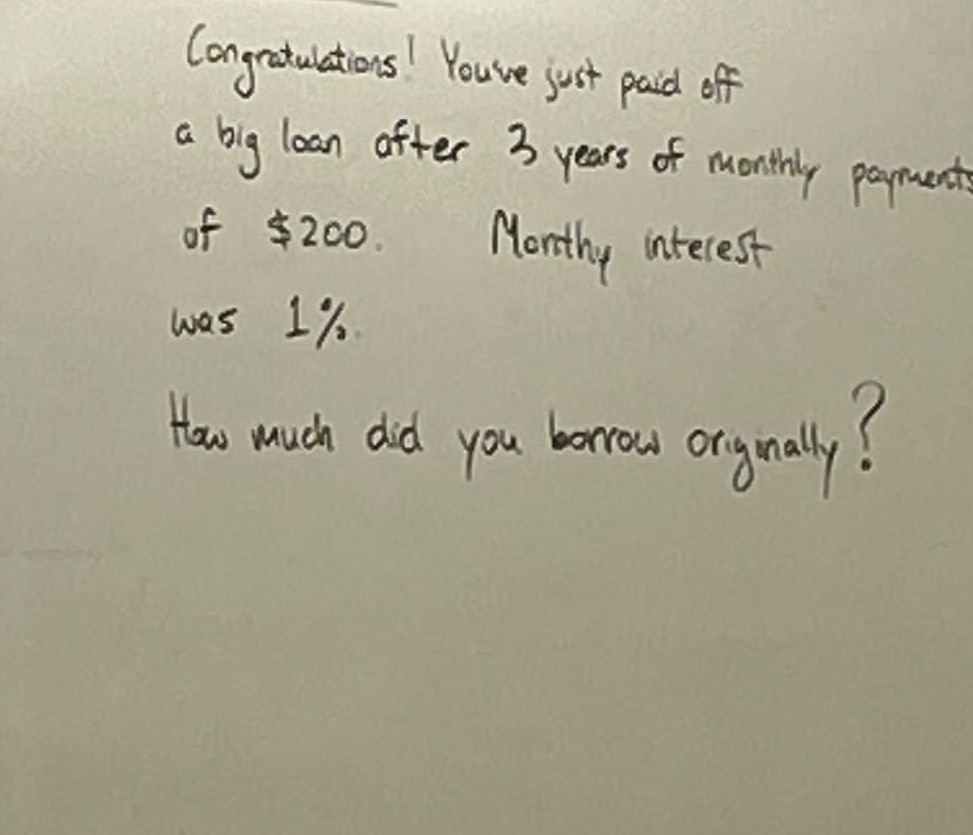 Congratulations! You've just paid off
a big loan after 3 years of monthly payments
of $200. Monthy interest
was 1%.
How much did you borrow originally?